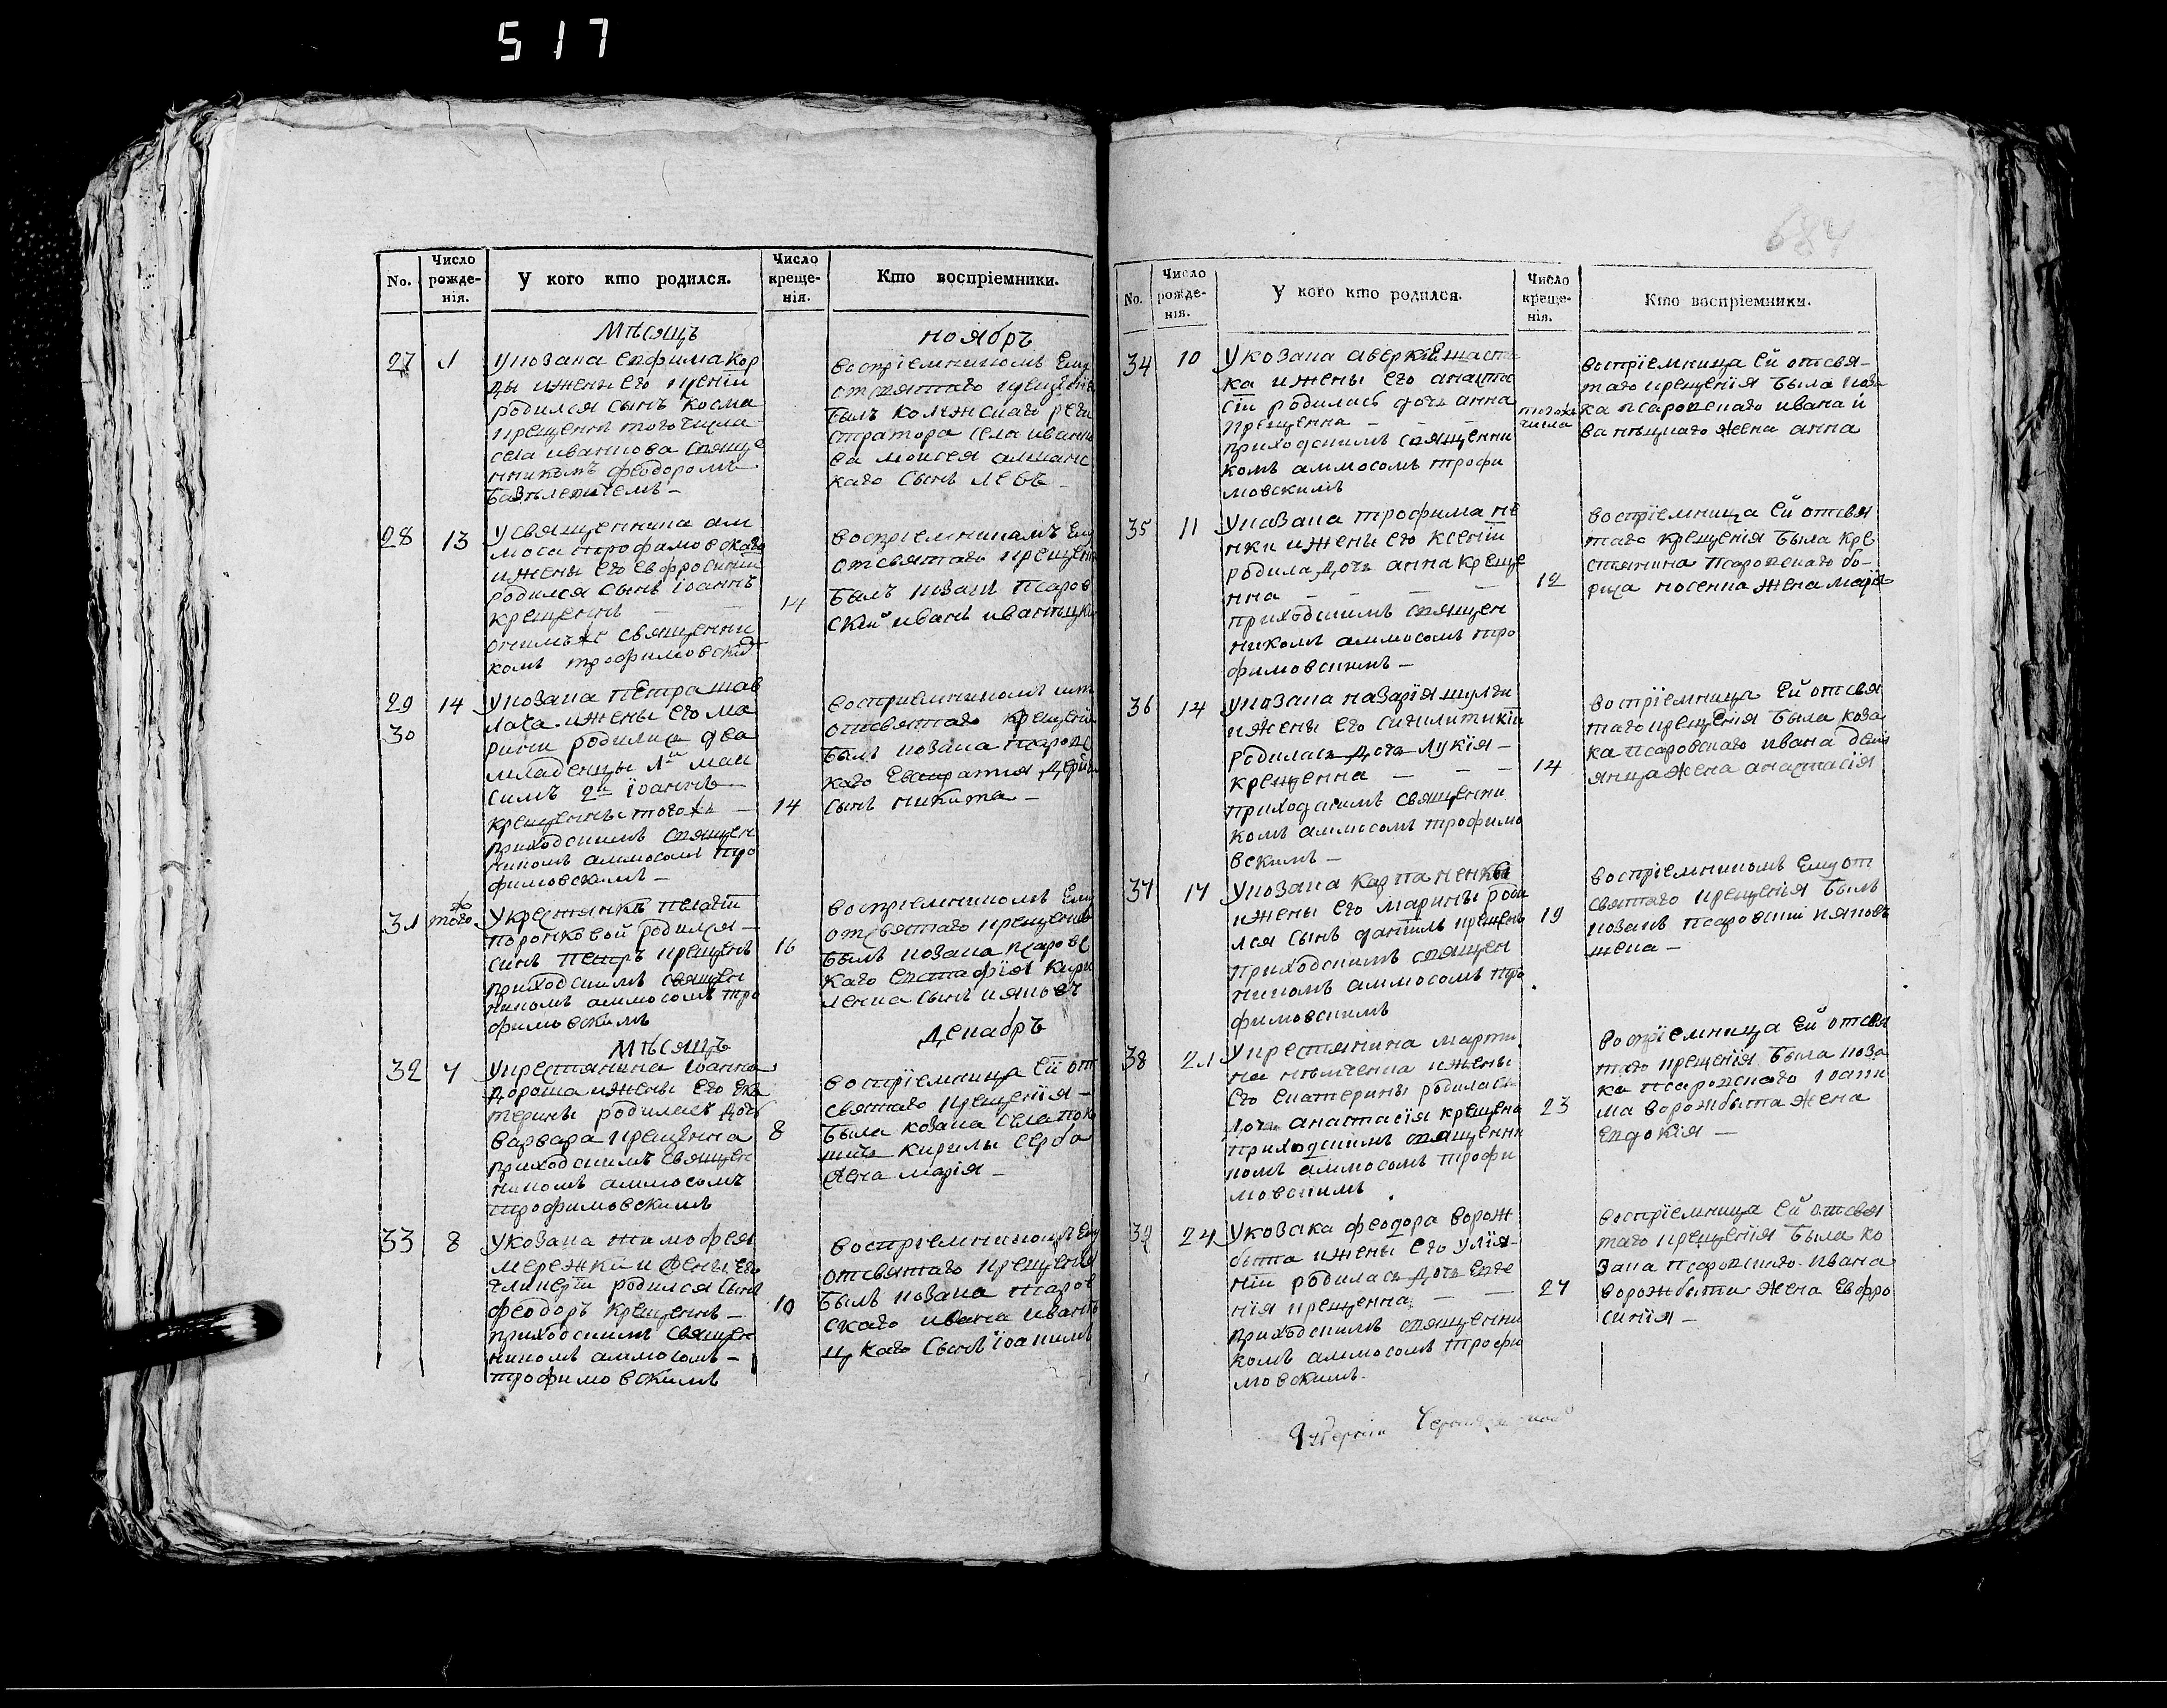 517
684
No.
Число рожде- нія.
У кого кто родился.
Число креще- нія.
Кто воспріемники.
Мѣсяцъ
ноябръ
27
1
Укозака Евфима Кор
ды ижены его
родился сынъ Косма
крещенъ того числа
села иванкова свяще
нникомъ феодоромъ
воспріемникомъ Ему
отсвятаго крещенія
былъ колежскаго реги
стратора села иванко
ва моисея
каго сынъ левъ
28
13
Усвященника ам
моса трофимовскаго
ижены его евфросиніи
родился сынъ іоаннъ
крещеннъ
онимъже священни
комъ трофимовскимъ
14
воспріемникомъ Ему
отсвятаго крещенія
былъ козакъ псаров
скій иванъ иваницкій
29
30
14
Укозака петра шав
лача ижены его ма
рини родилис два
младенцы 1й маи
симъ 2й іоаннъ
крещеннытогожъ
приходскимъ священ
никомъ аммосомъ тро
фимовскимъ
14
воспріемникомъ имъ
отсвятаго крещенія
былъ козака псаровс
каго Евстратія
сынъ никита
31
тогож
Укрестянкѣ пелагіи
поронковой родился
синъ петръ крещенъ
приходскимъ священ
никомъ аммосомъ тро
фимовскимъ
16
воспріемникомъ Ему
отсвятаго крещенія
былъ козака псаровс
каго евстафія кири
ленка сынъ іяковъ
Мѣсяцъ
декабръ
32
7
Укрестянина іоанна
дороша ижены его ека
терины родилась дочъ
варвара крещенна
приходскимъ священ
никомъ аммосомъ
трофимовскимъ
8
воспріемница Ей от
святаго крещенія
была козака села пок
кирилы серба
жена марія
33
8
Укозака тимофея
мережки и жены его
гликеріи родился сынъ
феодоръ крещеннъ
приходскимъ священ
никомъ аммосомъ
трофимовскимъ
10
воспріемникомъ Ему
отсвятаго крещенія
былъ козака псаров
скаго ивана иваниц
каго сынъ іоакимъ
No.
Число рожде- нія.
У кого кто родился.
Число креще- нія.
Кто воспріемники.
34
10
Укозака аверкія шаста
ка ижены его анаста
сіи родилась дочъ анна
крещенна
приходскимъ священни
комъ аммосомъ трофи
мовскимъ
тогожъ числа
воспріемница Ей отсвя-
таго крещенія была коза
ка псаровскаго ивана и
ваницкаго жена анна
35
11
Укозака трофима не
нки ижены его ксеніи
родила дочъ анна креще
нна
приходскимъ священ
никомъ аммосомъ тро
фимовскимъ
12
воспріемница Ей отсвя
таго крещенія была кре
стянина псаровскаго бо-
риса носенка жена марія
36
14
Укозака назарія шулги
ижены его синклитикіи
родиласъ дочъ лукія
крещенна
приходскимъ священни
комъ аммосомъ трофимо
вскимъ
14
воспріемница Ей отсвя
таго крещенія была коза
ка псаровскаго ивана демя
янца жена анастасія
37
17
Укозака карпа ненки
ижены его марины роди
лся сынъ даніилъ крещенъ
приходскимъ священ
никомъ аммосомъ тро
фимовскимъ
19
воспріемникомъ Ему от
святаго крещенія былъ
козакъ псаровскій іяковъ
38
21
Укрестянина марти
на нѣмченка ижены
его екатерины родиласъ
дочъ анастасія крещена
приходскимъ священни
комъ аммосомъ трофи
мовскимъ
23
воспріемница Ей отсвя
таго крещенія была коза
ка псаровскаго іоаки
ма ворожбыта жена
евдокія
39
24
Укозака феодора ворож
быта ижены его уліа-
ніи родиласъ дочъ евге
нія крещенна
приходскимъ священни
комъ аммосомъ трофи
мовскимъ
27
воспріемница Ей отсвя
таго крещенія была ко
зака псаровскаго ивана
ворожбыта жена евфро
синія
Губерніи